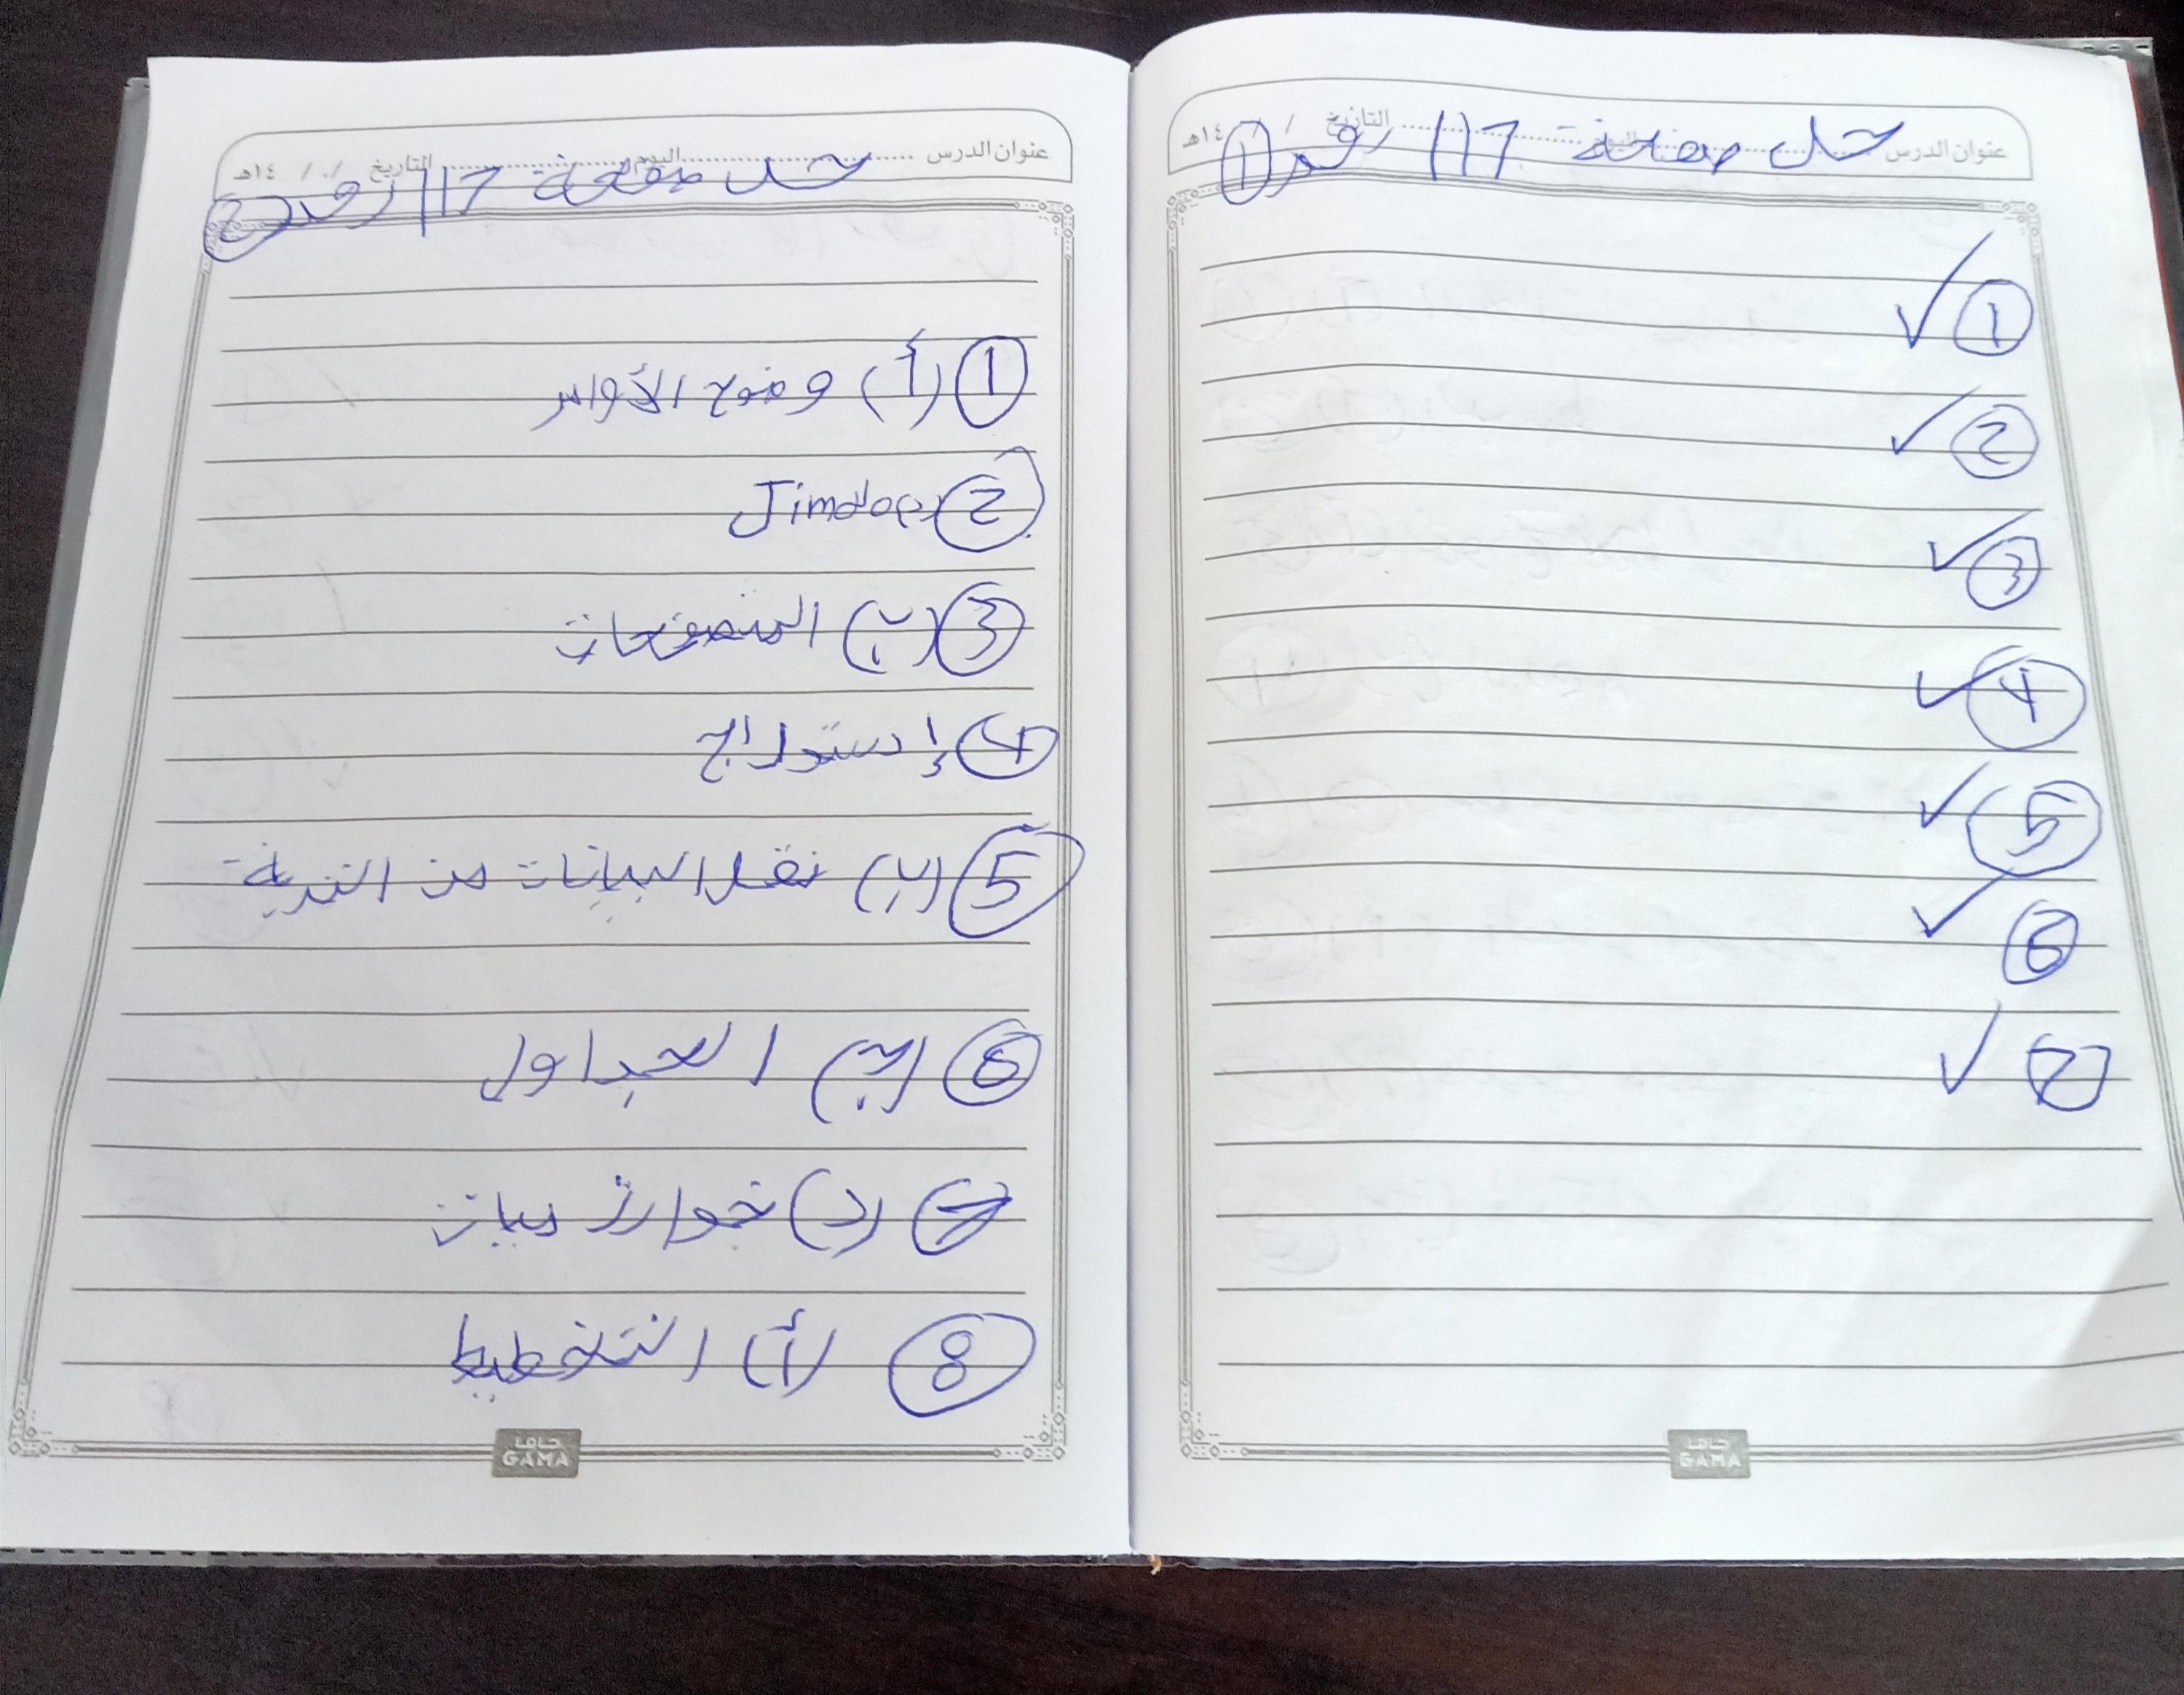 عنوان الدرس اليوم التاريخ / / ١٤هـ
حل صفحة 117 رقم 1
1 ✓
2 ✓
3 ✓
4 ✓
5 ✓
6 ✓
7 ✓
جاما
GAMA
عنوان الدرس اليوم التاريخ / / ١٤هـ
حل صفحة 117 رقم 2
1 (أ) وضوح الألوان
2 Jimdo
3 (ب) المتصفحات
4 إدراج
5 (ب) نقل البيانات من
6 (ج) الجداول
7 (د) خوارزميات
8 (أ) التخطيط
جاما
GAMA